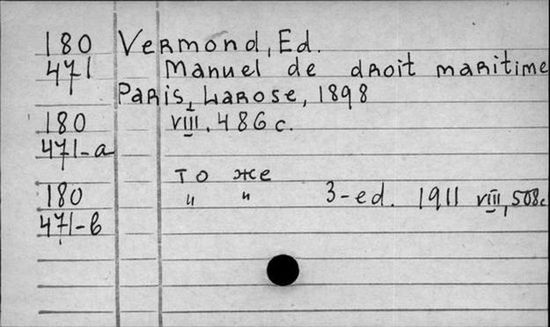 180 Vermond, Ed.
471 Manuel de droit maritime
Paris, Larose, 1898
180 VIII, 486 c.
471-a
то же
180 " " 3-ed. 1911 VIII, 508c.
471-b